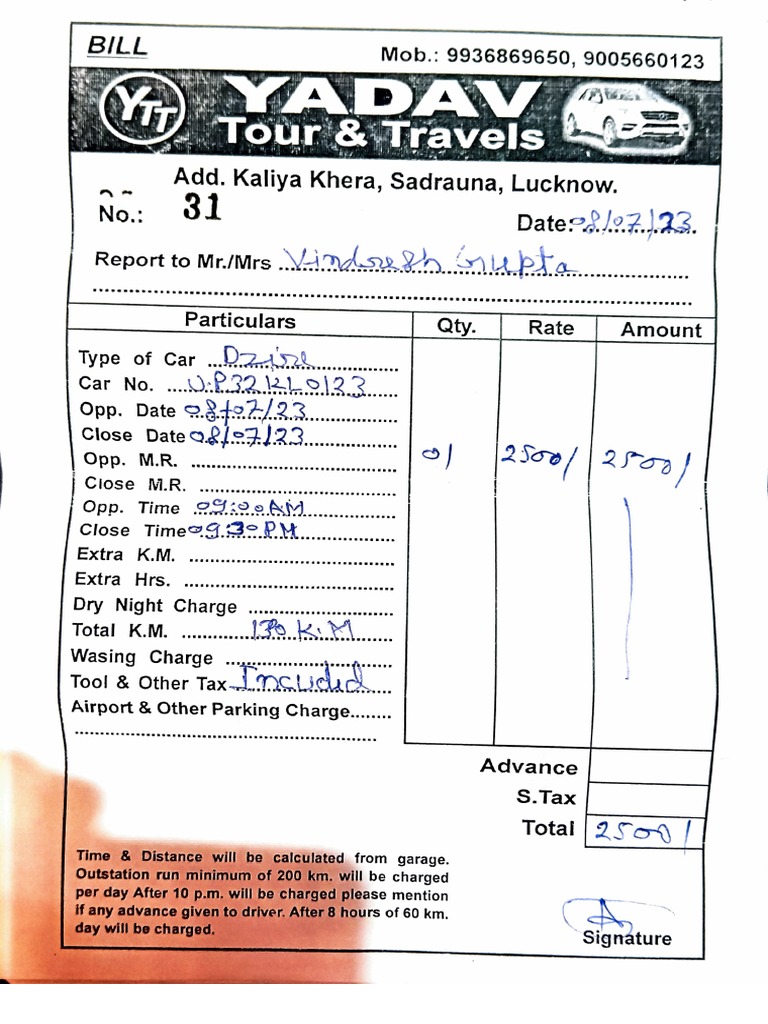 BILL
Mob.: 9936869650, 9005660123
YTT
YADAV
Tour & Travels
Add. Kaliya Khera, Sadrauna, Lucknow.
No.: 31
Date: 08/07/23
Report to Mr./Mrs Vindresh Gupta
Particulars Qty. Rate Amount
Type of Car Dzire
Car No. U.P32KL0123
Opp. Date 08/07/23
Close Date 08/07/23
Opp. M.R. 01 2500/ 2500/
Close M.R.
Opp. Time 09:00AM
Close Time 09:30PM
Extra K.M.
Extra Hrs.
Dry Night Charge
Total K.M. 130 K.M
Wasing Charge
Tool & Other Tax Incuded
Airport & Other Parking Charge
Advance
S.Tax
Total 2500/
Time & Distance will be calculated from garage.
Outstation run minimum of 200 km. will be charged
per day After 10 p.m. will be charged please mention
if any advance given to driver. After 8 hours of 60 km.
day will be charged.
Signature